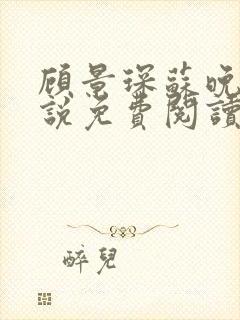 顾景琛蘇晚
說免費閱讀
醉兒